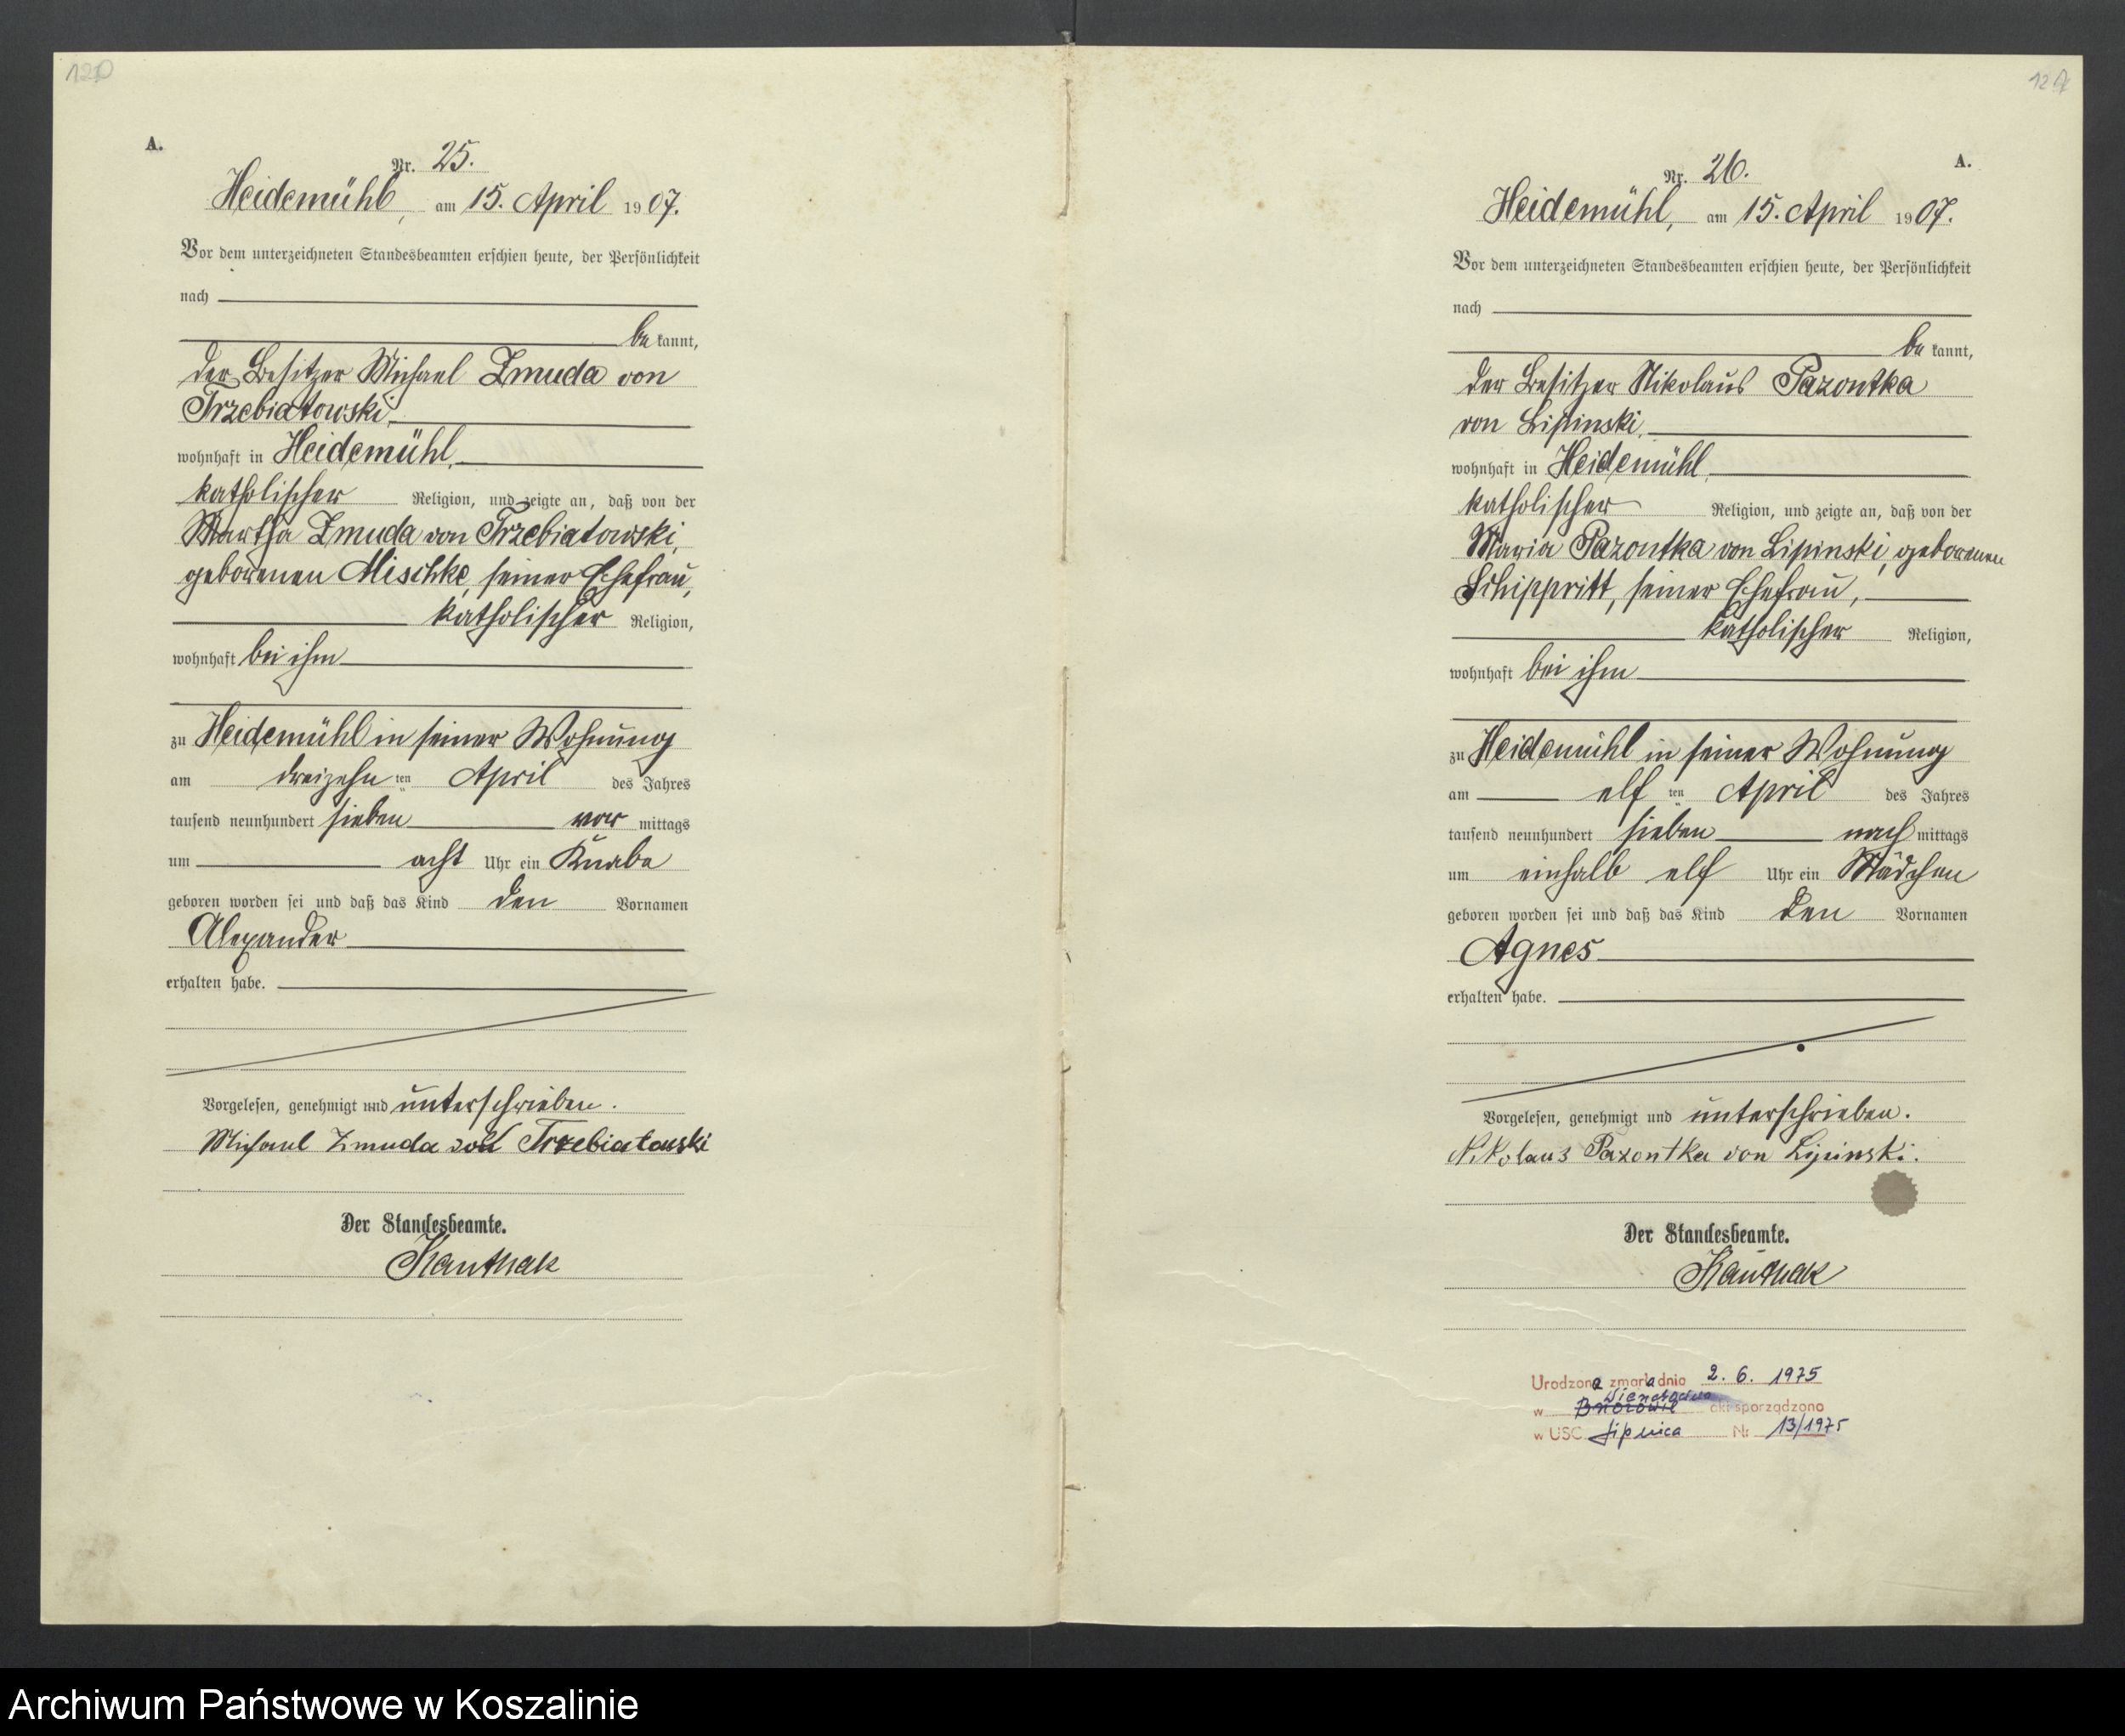 120
A.
Nr. 25.
Heidemühl, am 15. April 1907.
Vor dem unterzeichneten Standesbeamten erschien heute, der Persönlichkeit
nach
be kannt,
der Besitzer Michael Zmuda von
Trzebiatowski,
wohnhaft in Heidemühl,
katholischer Religion, und zeigte an, daß von der
Martha Zmuda von Trzebiatowski,
geborenen Mischke, seiner Ehefrau,
katholischer Religion,
wohnhaft bei ihm
zu Heidemühl in seiner Wohnung
am dreizehn ten April des Jahres
tausend neunhundert sieben vor mittags
um acht Uhr ein Knabe
geboren worden sei und daß das Kind den Vornamen
Alexander
erhalten habe.
Vorgelesen, genehmigt und unterschrieben.
Michael Zmuda von Trzebiatowski
Der Standesbeamte.
A.
Nr. 26.
Heidemühl, am 15. April 1907.
Vor dem unterzeichneten Standesbeamten erschien heute, der Persönlichkeit
nach
be kannt,
der Besitzer Nikolaus Pazontka
von Lipinski,
wohnhaft in Heidemühl,
katholischer Religion, und zeigte an, daß von der
Maria Pazontka von Lipinski, geborenen
Schippritt, seiner Ehefrau,
katholischer Religion,
wohnhaft bei ihm
zu Heidemühl in seiner Wohnung
am elf ten April des Jahres
tausend neunhundert sieben nach mittags
um einhalb elf Uhr ein Mädchen
geboren worden sei und daß das Kind den Vornamen
Agnes
erhalten habe.
Vorgelesen, genehmigt und unterschrieben.
Nikolaus Pazontka von Lipinski.
Der Standesbeamte.
Urodzona zmarła dnia 2. 6. 1975
w akt sporządzono
w USC Lipnica Nr 13/1975
Archiwum Państwowe w Koszalinie